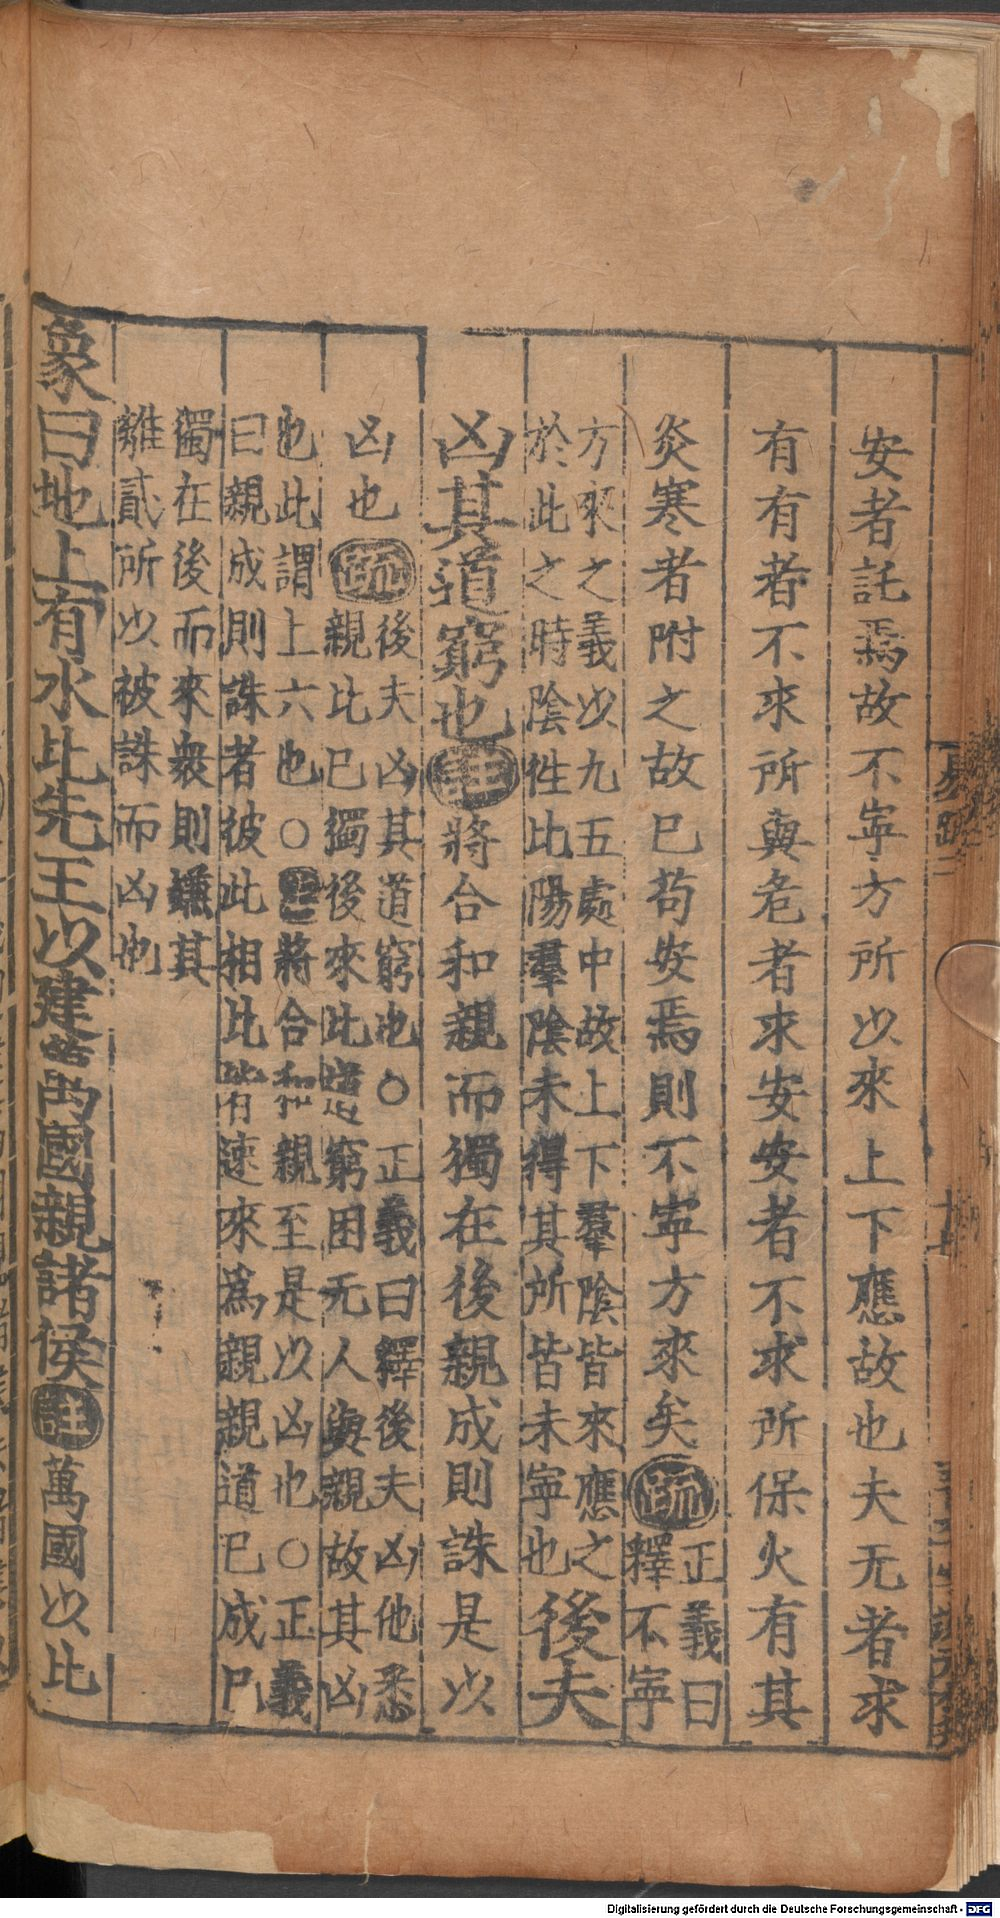 安者託焉故不寧方所以來上下應故也夫无者求
有有者不求所與危者求安安者不求所保火有其
炎寒者附之故已苟安焉則不寧方來矣疏正義曰
釋不寧
方來之義以九五處中故上下羣陰皆來應之
於此之時陰性比陽羣陰未得其所皆未寧也後夫
凶其道窮也註將合和親而獨在後親成則誅是以
凶也疏後夫凶其道窮也○正義曰釋後夫凶他悉
親比已獨後來比道窮困无人與親故其凶
也此謂上六也○註將合和親至是以凶也○正義
曰親成則誅者彼此相比皆速來為親親道已成
獨在後而來衆則嫌其
離貳所以被誅而凶也
象曰地上有水比先王以建萬國親諸侯註萬國以比
易疏二
Digitalisierung gefördert durch die Deutsche Forschungsgemeinschaft - DFG